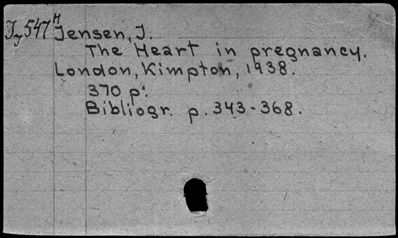 J, 547 H Jensen, J.
The Heart in pregnancy.
London, Kimpton, 1938.
370 p.
Bibliogr. p. 343-368.